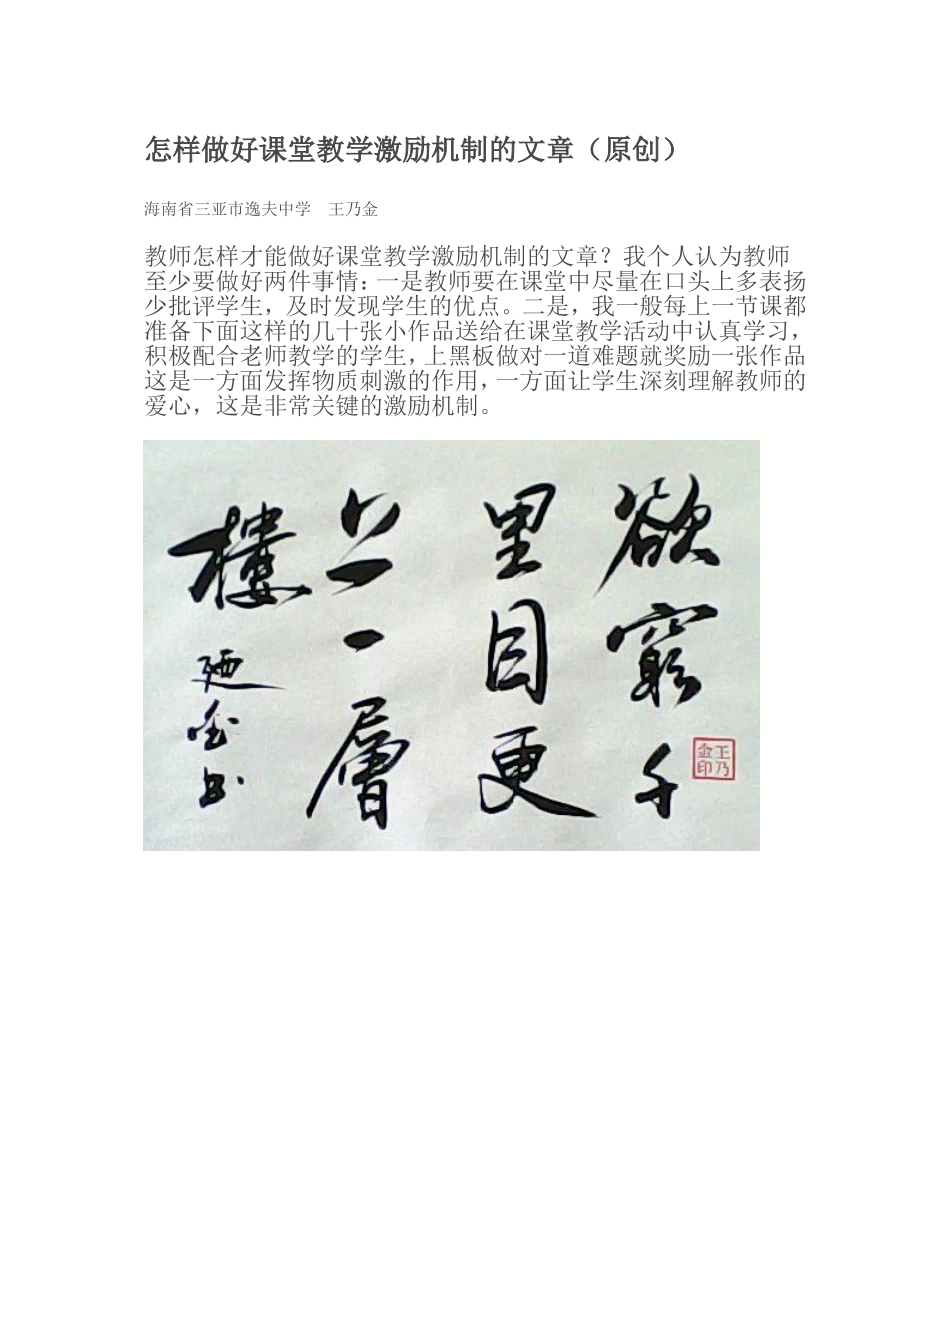 怎样做好课堂教学激励机制的文章（原创）
海南省三亚市逸夫中学　王乃金
教师怎样才能做好课堂教学激励机制的文章？我个人认为教师
至少要做好两件事情：一是教师要在课堂中尽量在口头上多表扬
少批评学生，及时发现学生的优点。二是，我一般每上一节课都
准备下面这样的几十张小作品送给在课堂教学活动中认真学习，
积极配合老师教学的学生，上黑板做对一道难题就奖励一张作品
这是一方面发挥物质刺激的作用，一方面让学生深刻理解教师的
爱心，这是非常关键的激励机制。
欲窮千
里目更
上一層
樓
廼金书
王乃金印